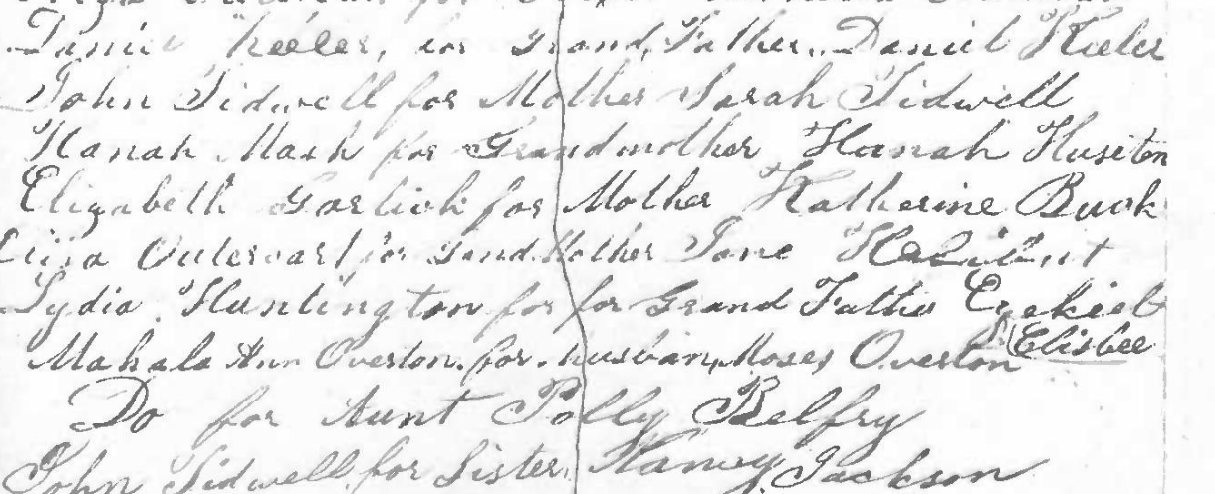 Daniel Keeler, for Grand Father, Daniel Keeler
John Tidwell for Mother Sarah Tidwell
Hanah Mash for Grandmother Hanah Huston
Elizabeth Garlick for Mother Katherine Buck
for Grand Mother Jane
Lydia Huntington for for Grand Father Ezekiel
Elisbee
Mahala Ann Overton for husban Moses Overton
Do for Aunt Polly Belfry
John Tidwell for Sister Nancy Jackson